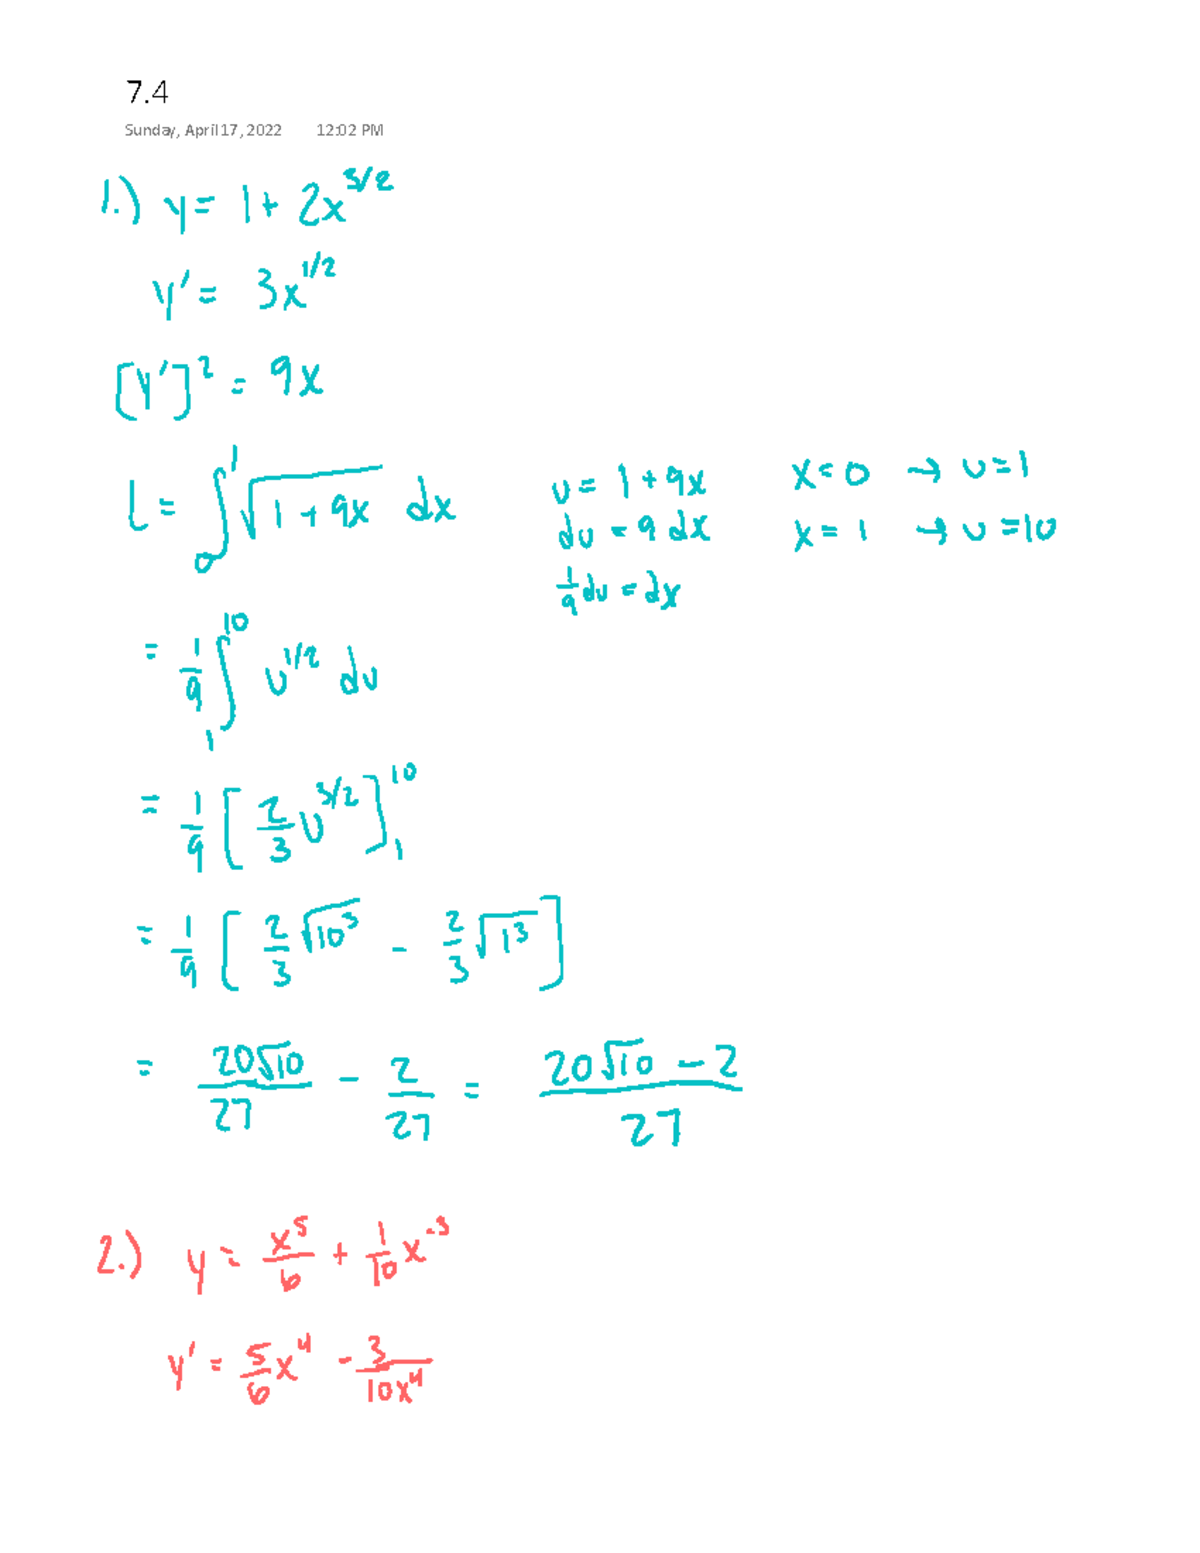 7.4
Sunday, April 17, 2022 12:02 PM
1.) y = 1 + 2x^3/2
y' = 3x^1/2
[y']^2 = 9x
L = ∫_0^1 √(1 + 9x) dx
u = 1 + 9x
x = 0 → u = 1
du = 9 dx
x = 1 → u = 10
1/9 du = dx
= 1/9 ∫_1^10 u^1/2 du
= 1/9 [2/3 u^3/2]_1^10
= 1/9 [2/3 √10^3 - 2/3 √1^3]
= 20√10/27 - 2/27 = (20√10 - 2)/27
2.) y = x^5/6 + 1/10 x^-3
y' = 5/6 x^4 - 3/10x^4